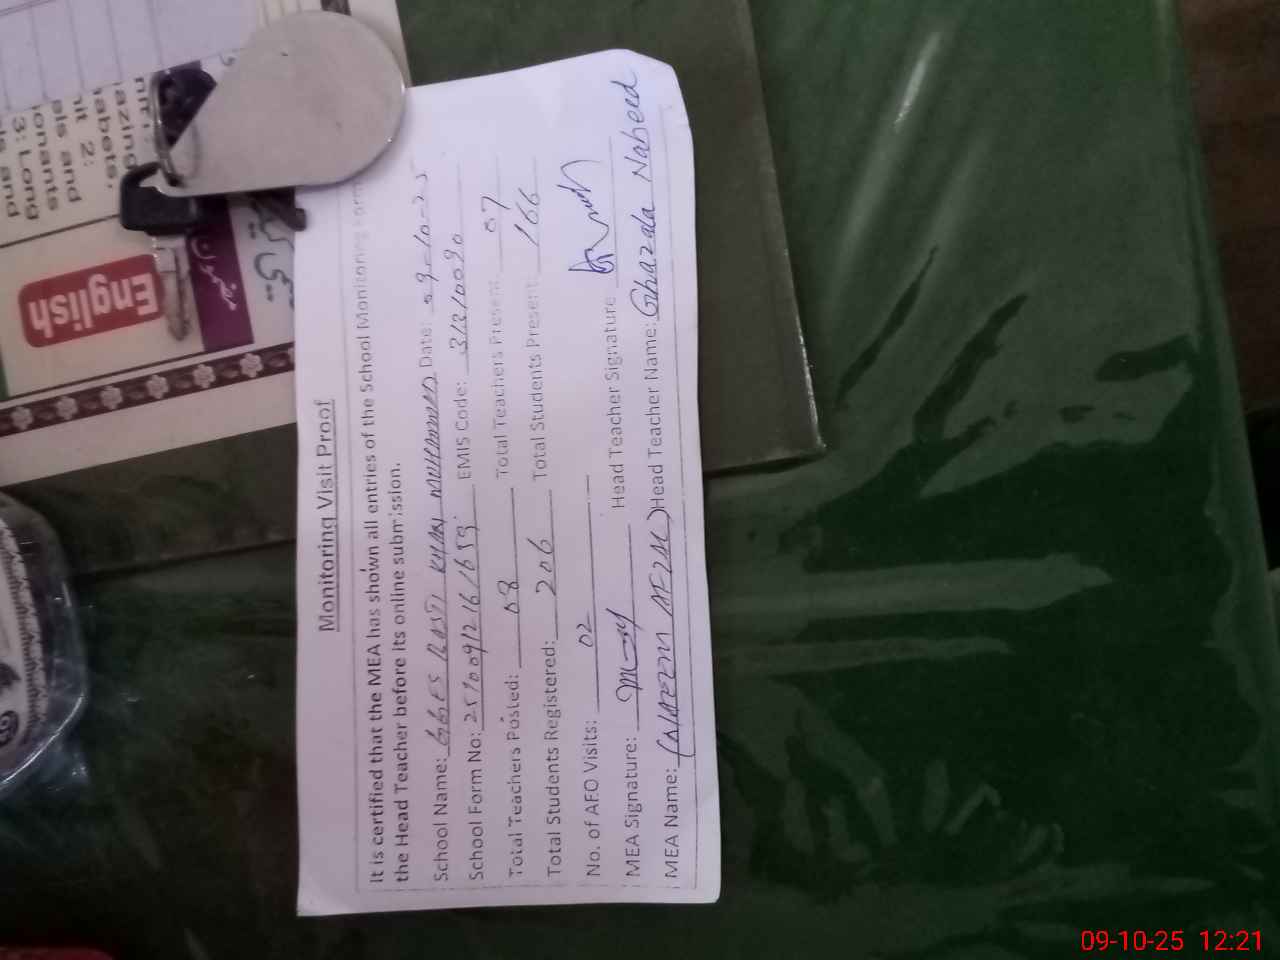 Monitoring Visit Proof
It is certified that the MEA has shown all entries of the School Monitoring Form
the Head Teacher before its online submission.
School Name: GGES BASTI KHAN MUHAMMAD Date: 09-10-25
School Form No: EMIS Code: 31310090
Total Teachers Posted: 08 Total Teachers Present: 07
Total Students Registered: 206 Total Students Present: 166
No. of AEO Visits: 02
MEA Signature: Head Teacher Signature
MEA Name: (NAEEM AFZAL) Head Teacher Name: Ghazala Naheed
English
abets.
it 2:
els and
onants
3: Long
09-10-25 12:21